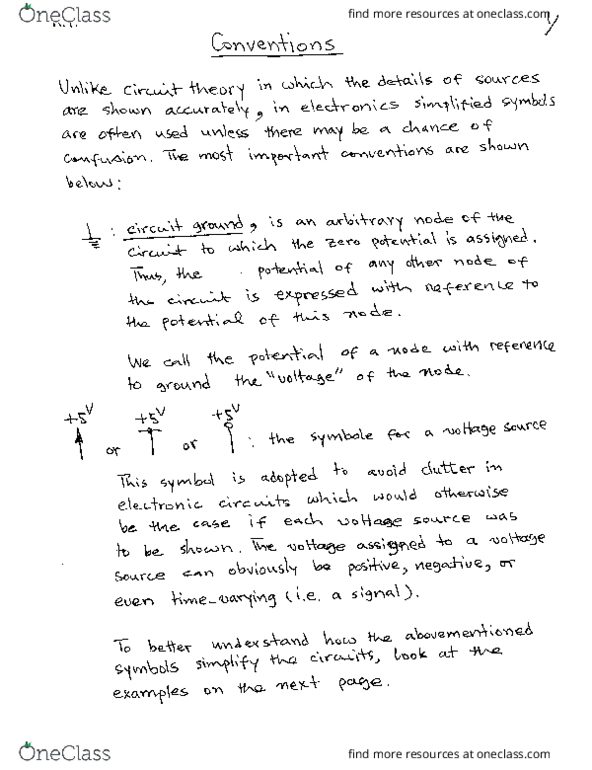 OneClass
find more resources at oneclass.com
Conventions
Unlike circuit theory in which the details of sources
are shown accurately, in electronics simplified symbols
are often used unless there may be a chance of
confusion. The most important conventions are shown
below:
: circuit ground, is an arbitrary node of the
circuit to which the zero potential is assigned.
Thus, the potential of any other node of
the circuit is expressed with reference to
the potential of this node.
We call the potential of a node with reference
to ground the "voltage" of the node.
+5V +5V +5V
or or : the symbole for a voltage source
This symbol is adopted to avoid clutter in
electronic circuits which would otherwise
be the case if each voltage source was
to be shown. The voltage assigned to a voltage
source can obviously be positive, negative, or
even time-varying (i.e. a signal).
To better understand how the abovementioned
symbols simplify the circuits, look at the
examples on the next page.
OneClass
find more resources at oneclass.com